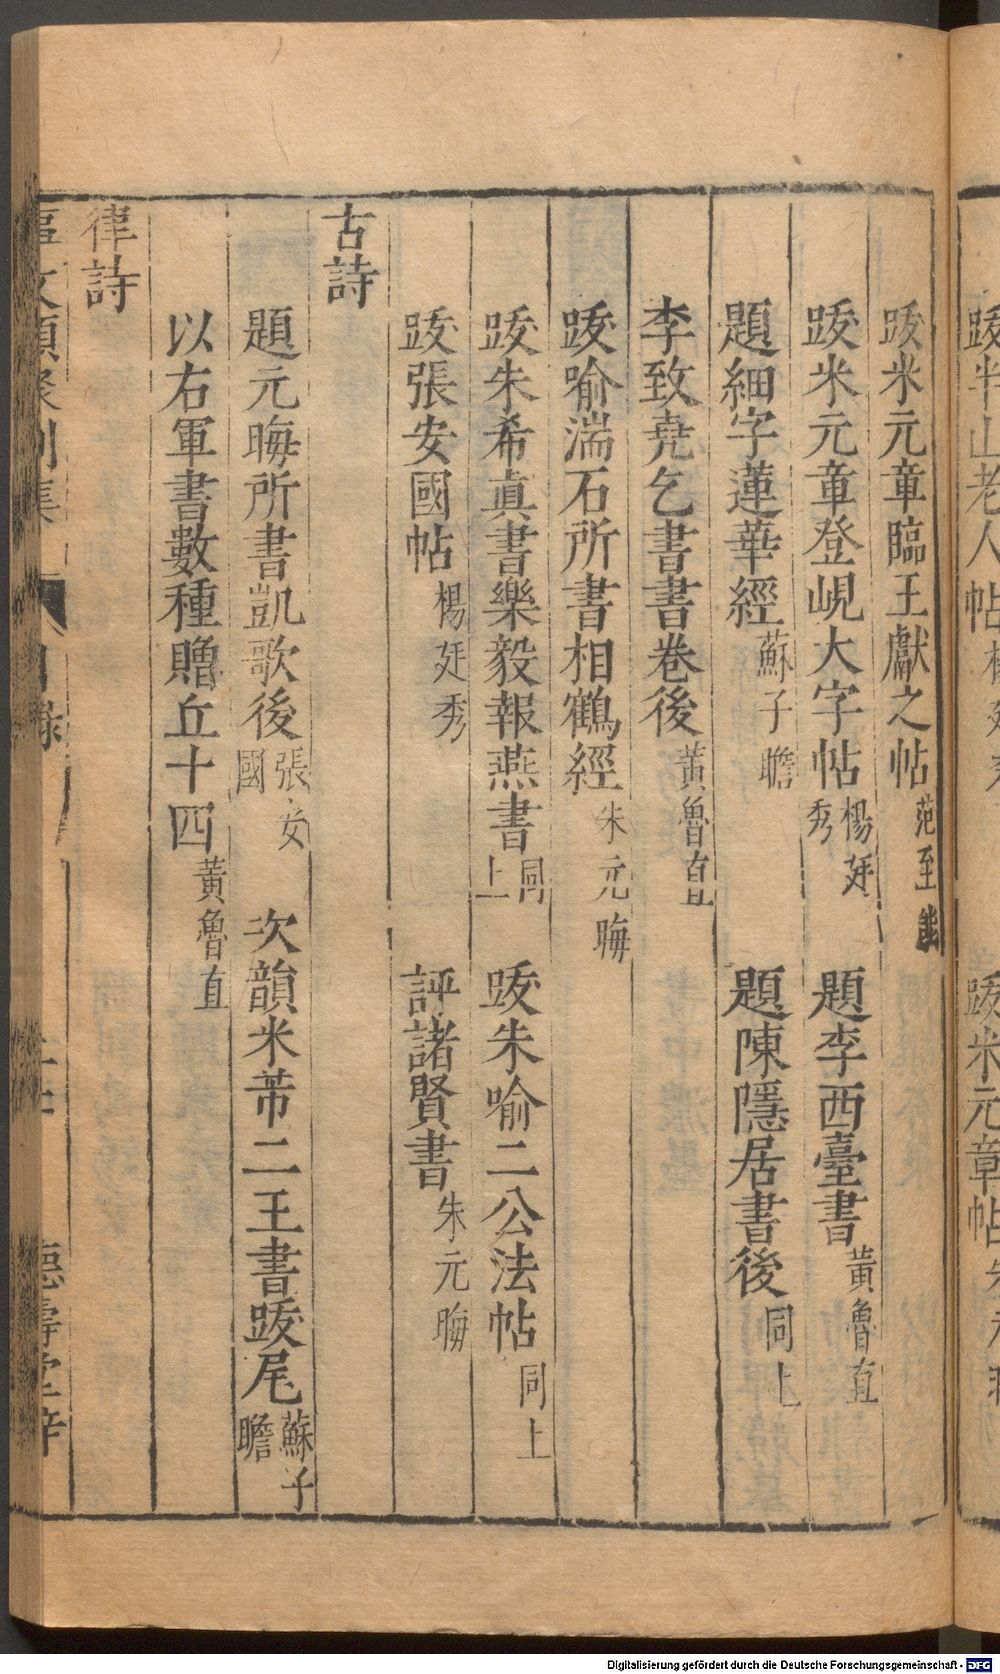 跋半山老人帖 楊廷秀 跋米元章帖
跋米元章臨王獻之帖 范至能
跋米元章登峴大字帖 楊廷秀 題李西臺書 黃魯直
題細字蓮華經 蘇子瞻 題陳隱居書後 同上
李致堯乞書書卷後 黃魯直
跋喻湍石所書相鶴經 朱元晦
跋朱希真書樂毅報燕書 同上 跋朱喻二公法帖 同上
跋張安國帖 楊廷秀 評諸賢書 朱元晦
古詩
題元晦所書凱歌後 張安國 次韻米芾二王書跋尾 蘇子瞻
以右軍書數種贈丘十四 黃魯直
律詩
事文類聚別集 目錄 德壽堂梓
Digitalisierung gefördert durch die Deutsche Forschungsgemeinschaft - DFG